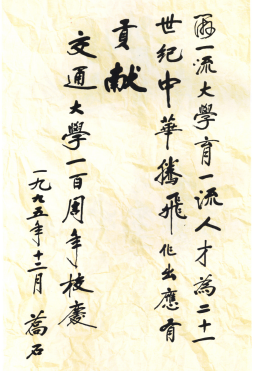 一流大學育一流人才為二十一
世紀中華騰飛作出應有
貢献
交通大學一百周年校慶
一九九五年十二月 石